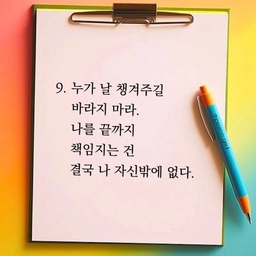 9. 누가 날 챙겨주길
바라지 마라.
나를 끝까지
책임지는 건
결국 나 자신밖에 없다.